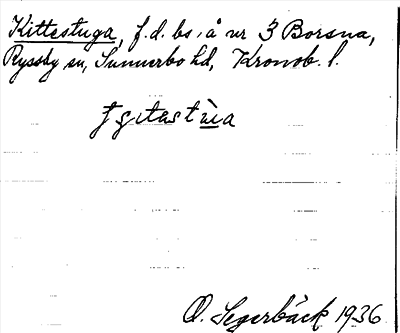 Kittestuga, f.d. bs. i å nr 3 Borsna,
Ryssby sn, Sunnerbo hd, Kronob. l.
O. Segerbäck 1936